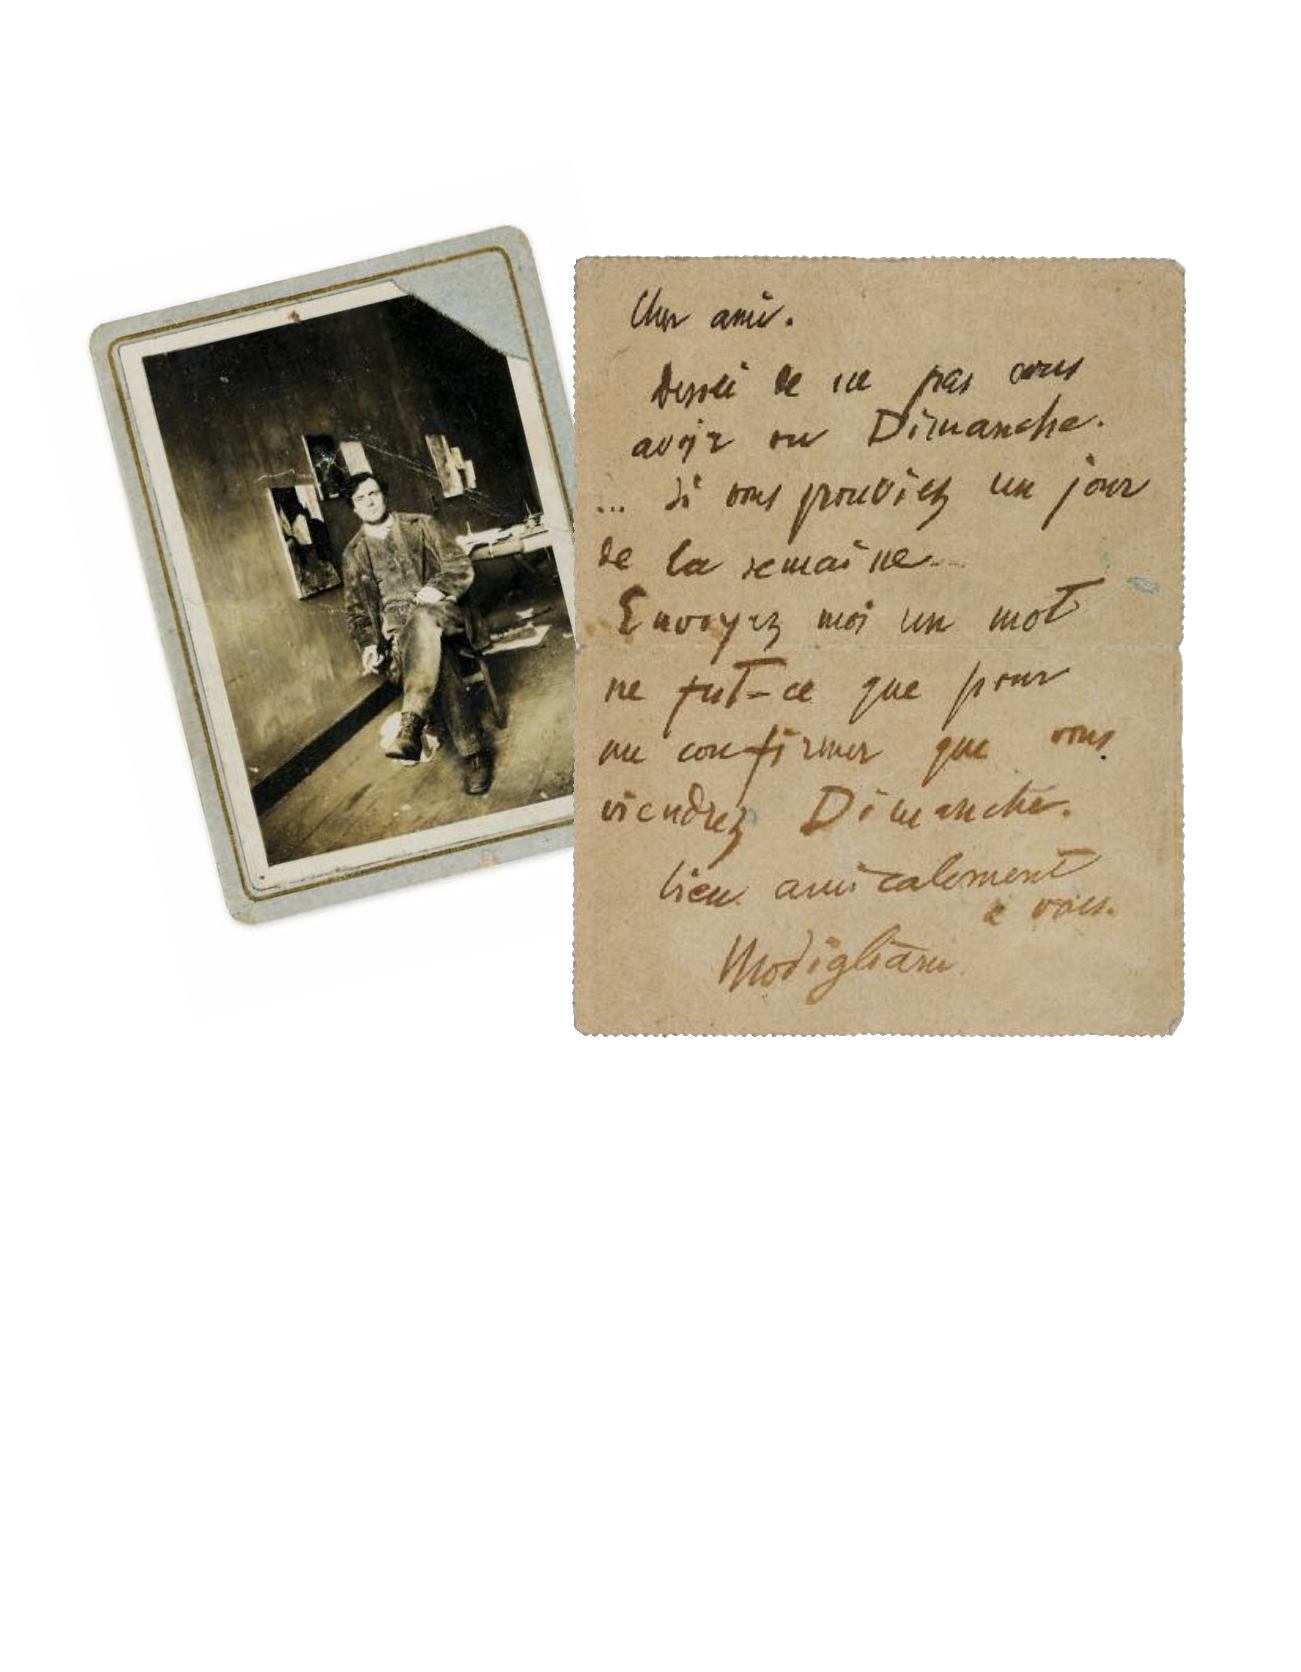 Cher ami.
Désolé de ne pas vous
avoir vu Dimanche.
... Si vous pouviez un jour
de la semaine..
Envoyez moi un mot
ne fut-ce que pour
me confirmer que vous
viendrez Dimanche.
bien amicalement
à vous.
Modigliani